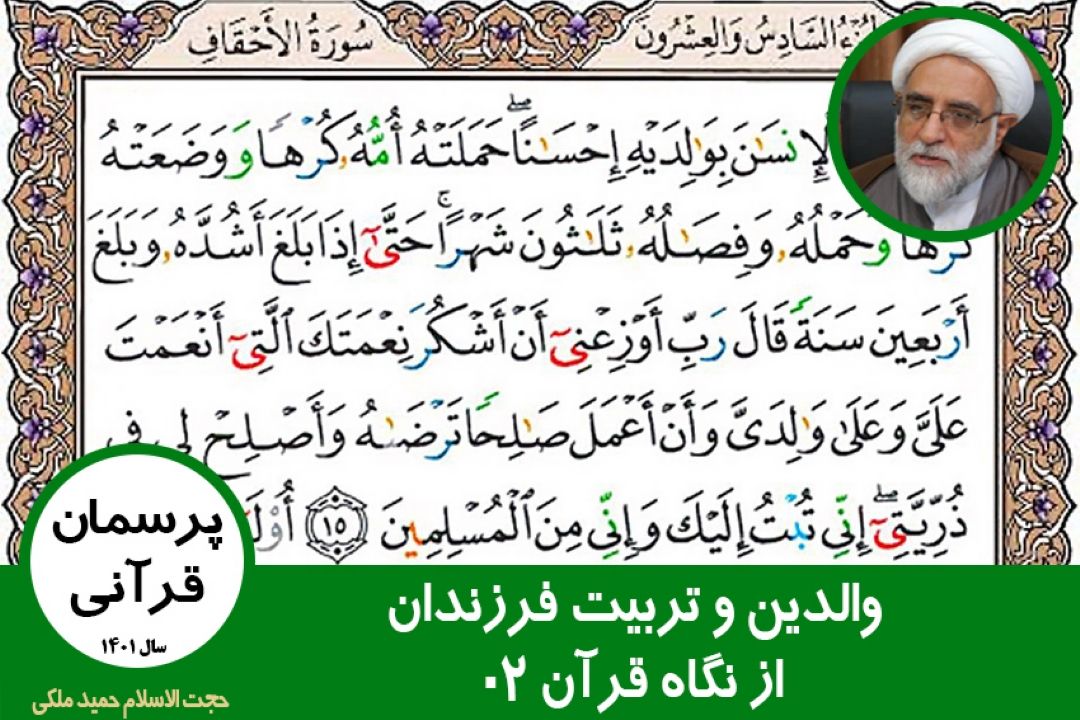 سُورَةُ الأَحْقَافِ
السَّادِسُ وَالعِشْرُونَ
لإِنسَٰنَ بِوَٰلِدَيْهِ إِحْسَٰنًا ۖ حَمَلَتْهُ أُمُّهُۥ كُرْهًا وَوَضَعَتْهُ
كُرْهًا وَحَمْلُهُۥ وَفِصَٰلُهُۥ ثَلَٰثُونَ شَهْرًا ۚ حَتَّىٰٓ إِذَا بَلَغَ أَشُدَّهُۥ وَبَلَغَ
أَرْبَعِينَ سَنَةً قَالَ رَبِّ أَوْزِعْنِىٓ أَنْ أَشْكُرَ نِعْمَتَكَ ٱلَّتِىٓ أَنْعَمْتَ
عَلَىَّ وَعَلَىٰ وَٰلِدَىَّ وَأَنْ أَعْمَلَ صَٰلِحًا تَرْضَىٰهُ وَأَصْلِحْ لِى فِى
ذُرِّيَّتِىٓ ۖ إِنِّى تُبْتُ إِلَيْكَ وَإِنِّى مِنَ ٱلْمُسْلِمِينَ ١٥
پرسمان
قرآنی
سال ۱۴۰۱
حجت الاسلام حمید ملکی
والدین و تربیت فرزندان
از نگاه قرآن ۰۲